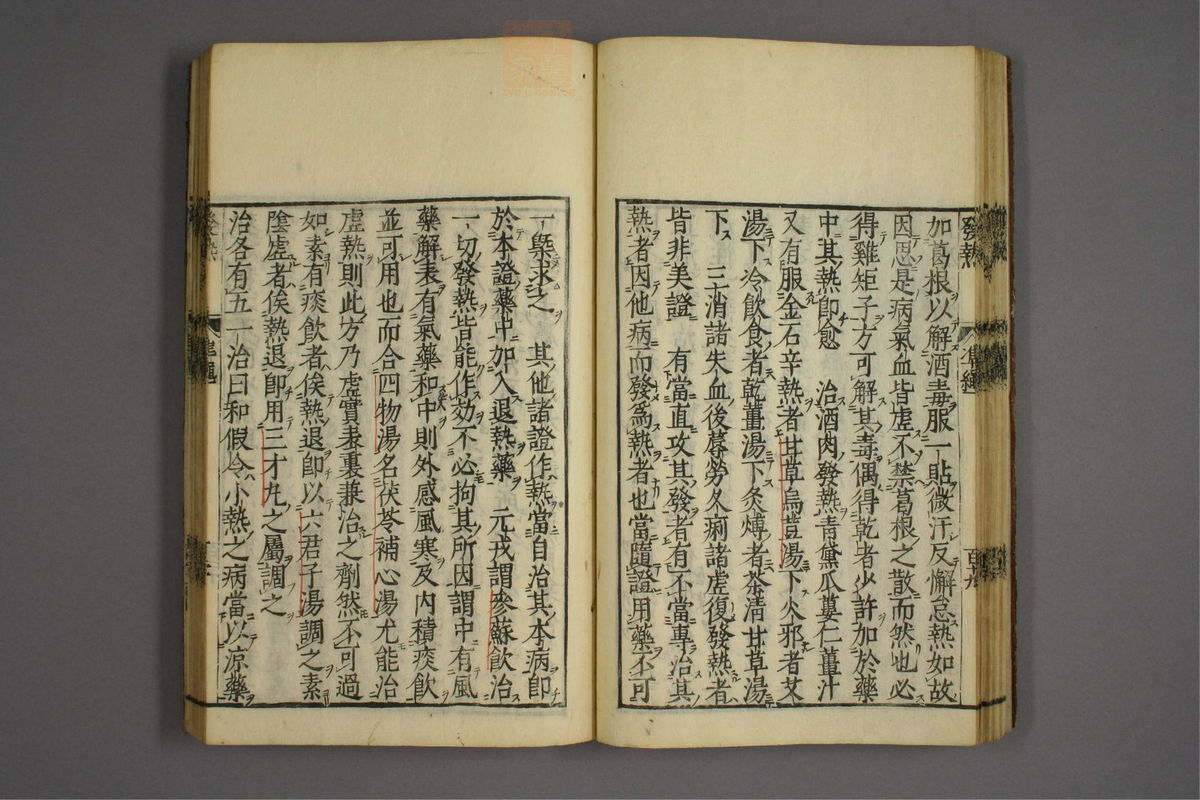 發熱
如葛根以解酒毒服一貼微汗反懈怠熱如故
因思是病氣血皆虛不禁葛根之散而然也必
得雞矩子方可解其毒偶得乾者少許加於藥
中其熱卽愈 治酒肉發熱青黛瓜蔞仁薑汁
又有服金石辛熱者甘草烏荳湯下火邪者艾
湯下冷飲食者乾薑湯下灸煿者茶淸甘草湯
下 三消諸失血後蓐勞久痢諸虛復發熱者
皆非美證 有當直攻其發者有不當專治其
熱者因他病而發爲熱者也當隨證用藥不可
一槩求之 其他諸證作熱當自治其本病卽
於本證藥中加入退熱藥 元戎謂參蘇飲治
一切發熱皆能作効不必拘其所因謂中有風
藥解表有氣藥和中則外感風寒及內積痰飲
並可用也而合四物湯名茯苓補心湯尤能治
虛熱則此方乃虛實表裏兼治之劑然不可過
如素有痰飲者俟熱退卽以六君子湯調之素
陰虛者俟熱退卽用三才丸之屬調之
治各有五一治曰和假令小熱之病當以涼藥